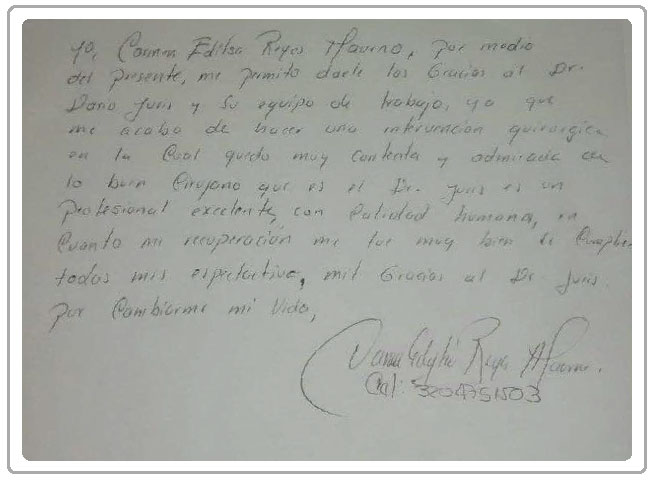 Yo, Carmen Editsa Reyes Moreno, por medio
del presente, me permito darle las Gracias al Dr.
Dario Juris y su equipo de trabajo, ya que
me acabo de hacer una intervención quirurgica
en la Cual quedo muy contenta y admirada con
lo buen Cirujano que es el Dr. Juris es un
profesional excelente, con Calidad humana, en
Cuanto mi recuperación me fue muy bien se Cumplier
todas mis espectactiva, mil Gracias al Dr. Juris
por Cambiarme mi Vida,
Reyes
Cel: 3204751503